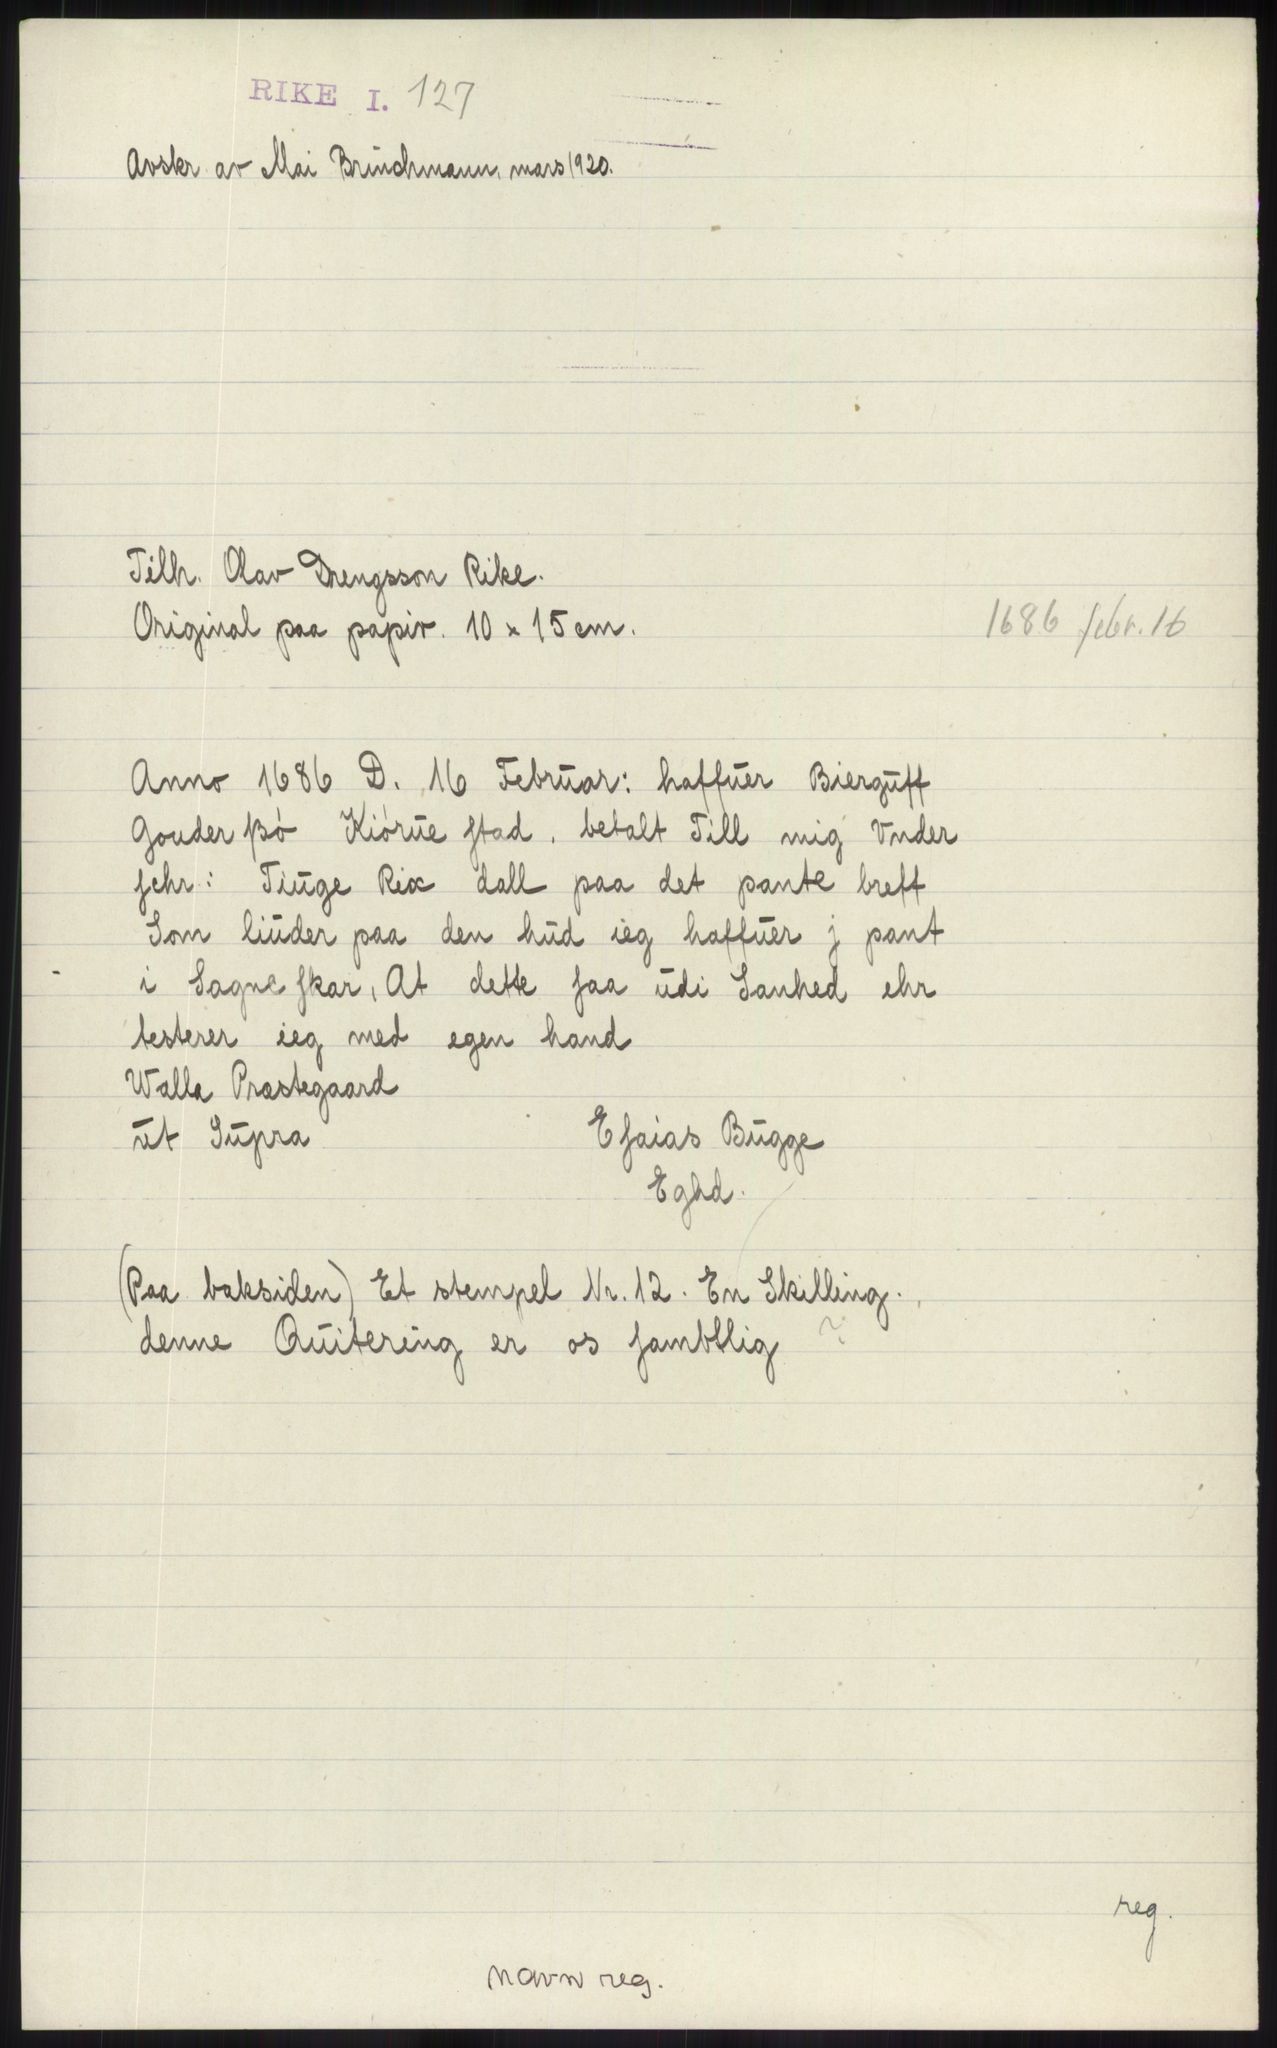 RIKE I. 127
Avskr. av Mai Brüchmann, mars 1920.
Tilh. Olav Drengsson Rike.
Original paa papir. 10 x 15 cm.
1686 febr. 16
Anno 1686 D. 16 Februar: haffuer Bierguff
Gouder ßó Kiórue stad. betalt Till mig Vnder
schr: Tiuge Rix dall paa det pante breff
Som liuder paa den hud ieg haffuer j pant
i Sagneskar, At dette saa udi Sanhed ehr
testerer ieg med egen hand
Walle Præstegaard
ut Supra
Esaias Bugge
Eghd.
(Paa baksiden) Et stempel Nr. 12. En Skilling.
denne Quitering er os samblig ?
reg.
navn reg.